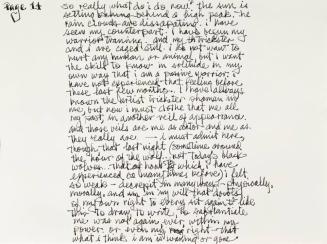 Page 11
so really what do i do now? the sun is
setting behind a high peak. the
rain clouds are dissapating. i have
seen my counterpart; i have begun my
warrior training. and my trickster
and i are cased still. i do not want to
hurt any human or animal, but i want
the skill to know in solitude in my
own way that i am a passive warrior. i
have not experienced that feeling before
these last few months. I have always
known the artist trickster shaman in
me, but now i must clothe that me all
my past in another veil of appearance.
and those veils are me as actor and me as
they really are — i must admit here,
though that last night (sometime around
the "hour of the wolf", not today's black
wolves. that of which i have
experienced so many times before) i felt
so weak - decrepit in many ways - physically,
morally, and my will that
of my own right to every act again to like
this - to draw to write, to substantiate
me was not again, ever within my
power. or even my right - that
what i think i am is waning or gone